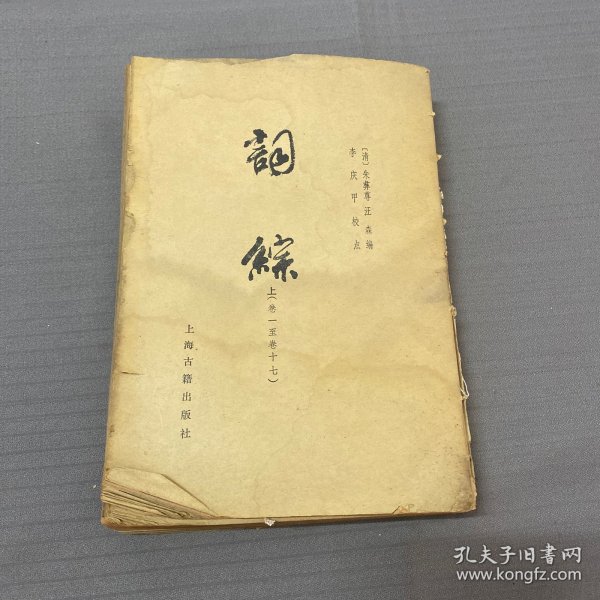 〔清〕朱彝尊 汪森 编
李庆甲 校点
詞綜
上(卷一至卷十七)
上海古籍出版社
孔夫子旧书网
www.kongfz.com